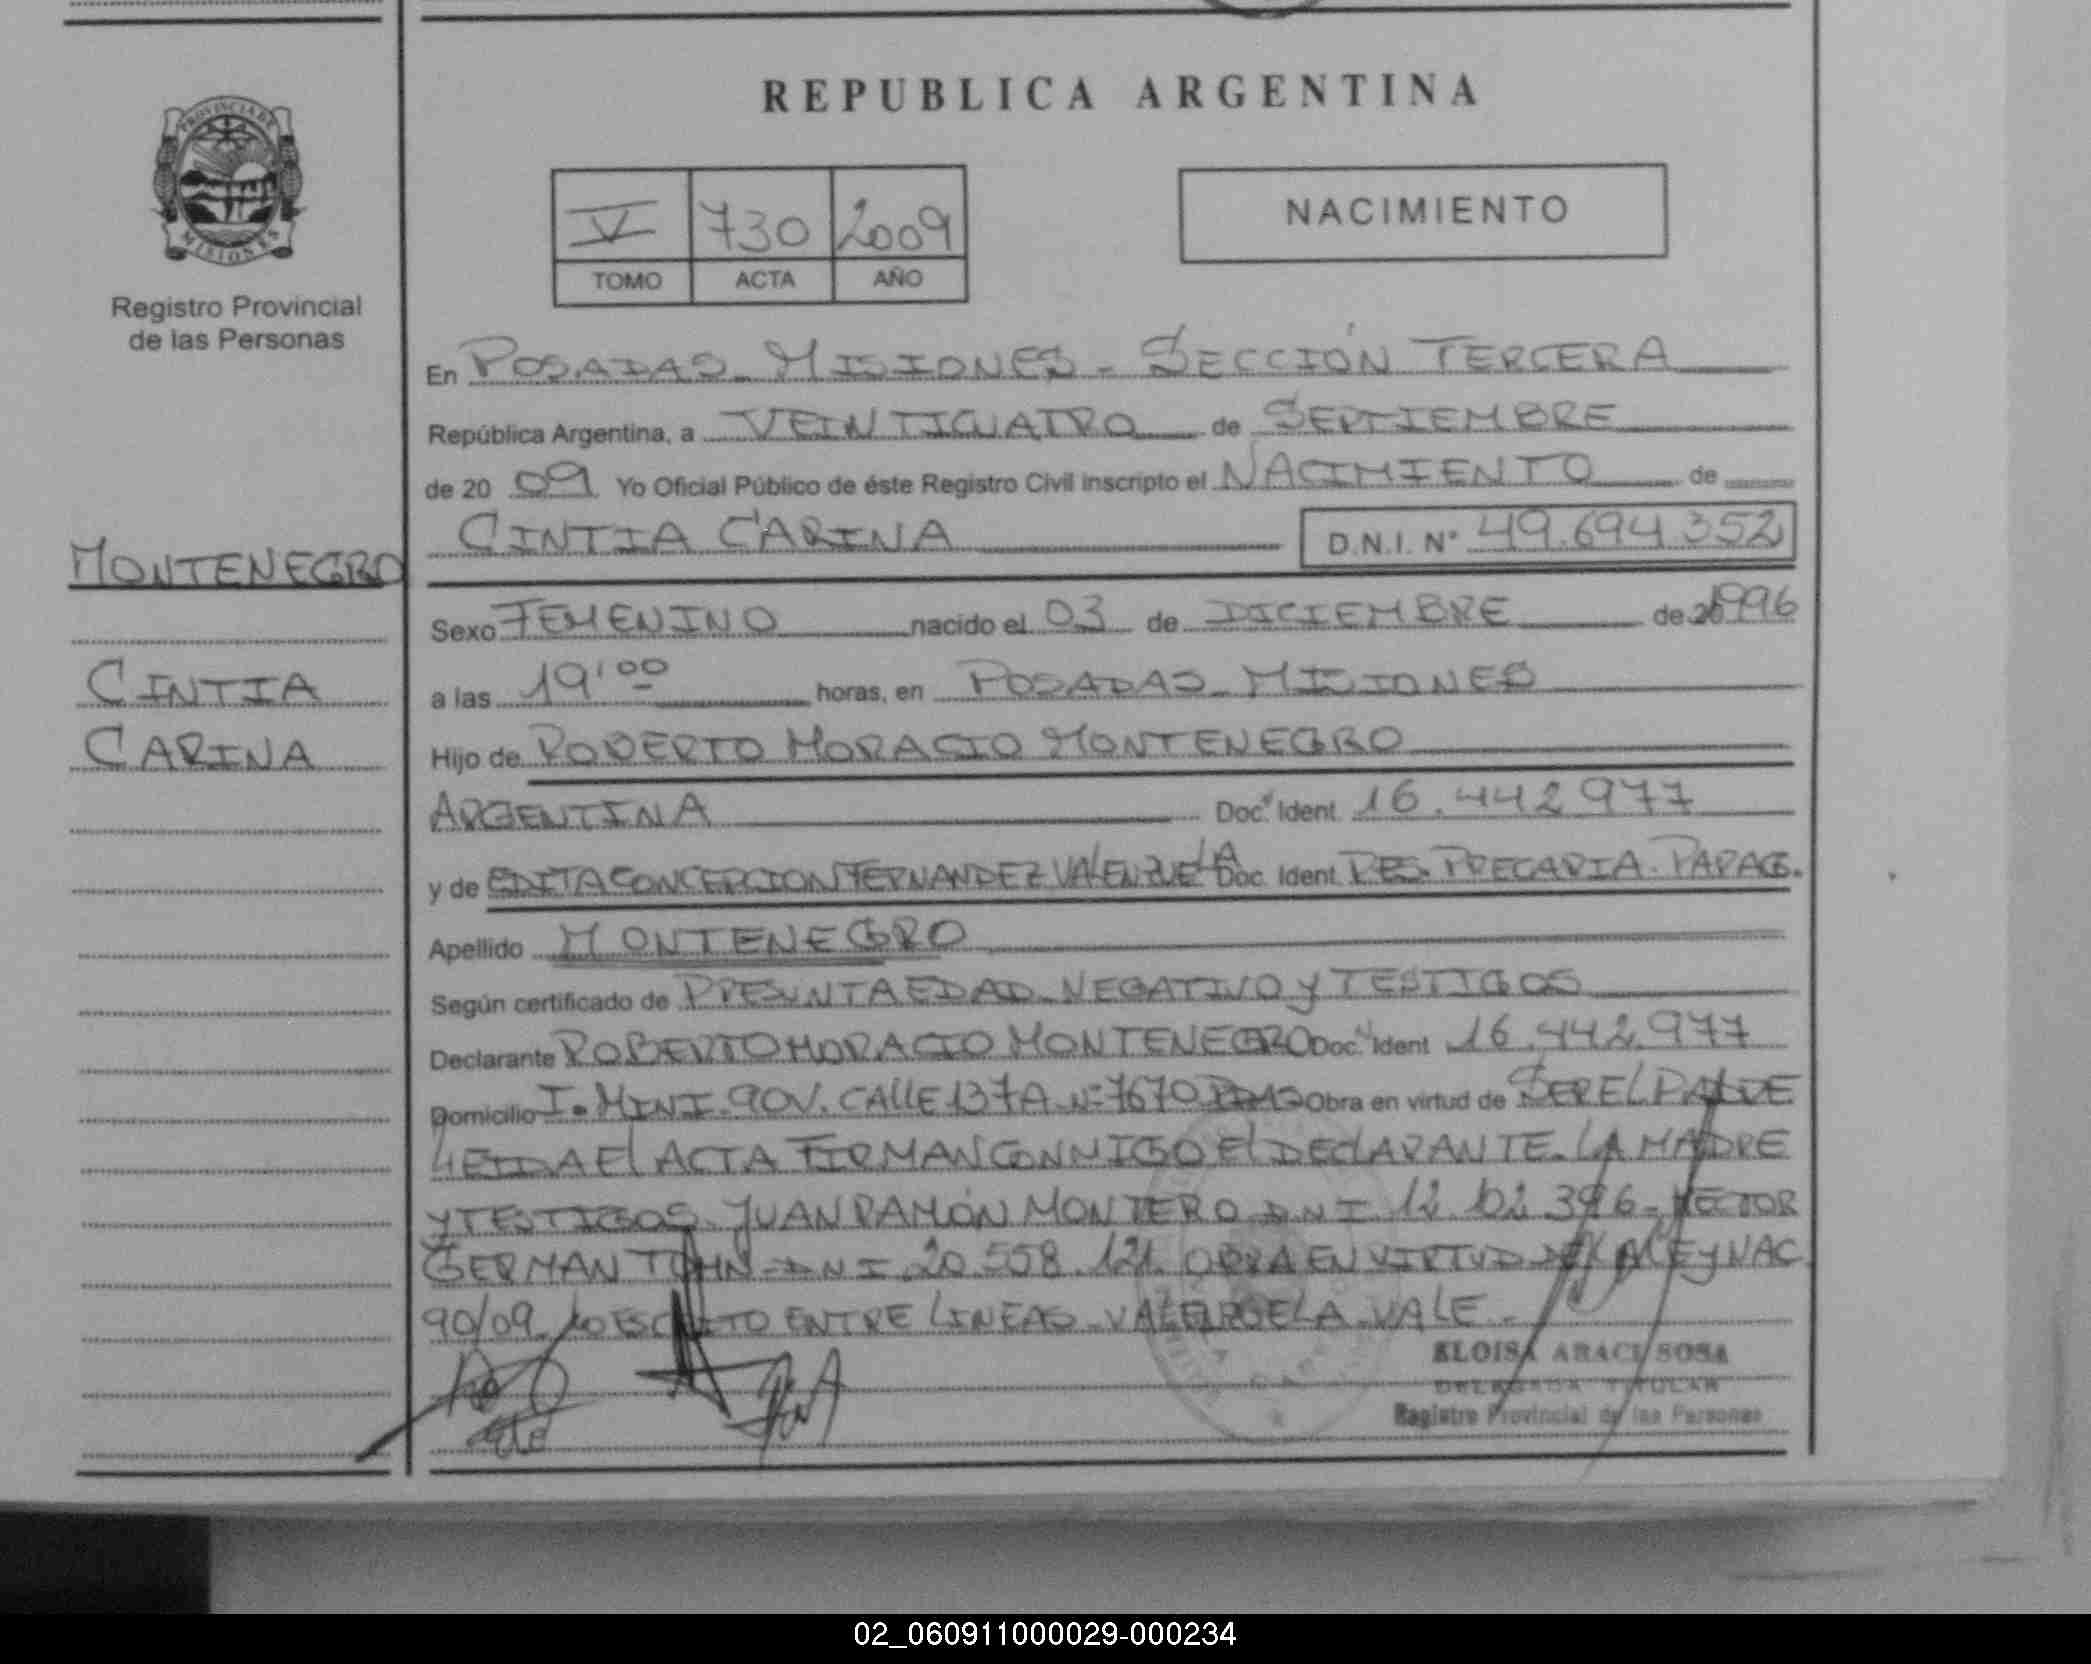 REPUBLICA ARGENTINA
PROVINCIA DE
MISIONES
Registro Provincial
de las Personas
V 730 2009
TOMO ACTA AÑO
NACIMIENTO
En POSADAS - MISIONES - SECCIÓN TERCERA
República Argentina, a VEINTICUATRO de SEPTIEMBRE
de 20 09 Yo Oficial Público de éste Registro Civil inscripto el NACIMIENTO de
CINTIA CARINA D.N.I. Nº 49.694.352
MONTENEGRO
CINTIA
CARINA
Sexo FEMENINO nacido el 03 de DICIEMBRE de 1996
a las 19'00 horas, en POSADAS - MISIONES
Hijo de ROBERTO HORACIO MONTENEGRO
ARGENTINA Doc. Ident. 16.442.977
y de EDITA CONCEPCION FERNANDEZ VALENZUELA Doc. Ident. RES. PRECARIA. PARAG.
Apellido MONTENEGRO
Según certificado de PRESUNTA EDAD - NEGATIVO Y TESTIGOS
Declarante ROBERTO HORACIO MONTENEGRO Doc. Ident 16.442.977
Domicilio I. MINI. 90V. CALLE 137A Nº 7670 Obra en virtud de SER EL PADRE
LEIDA El ACTA FIRMAN CONMIGO El DEClARANTE. LA MADRE
Y TESTIGOS. JUAN RAMÓN MONTERO D.N.I. 12. 396 - HECTOR
GERMAN D.N.I. 20.558.121. OBRA EN VIRTUD DE LA LEY NAC.
90/09. lo ESCRITO ENTRE LINEAS - VALE.
ELOISA ARACI SOSA
DELEGADA TITULAR
Registro Provincial de las Personas
02_060911000029-000234